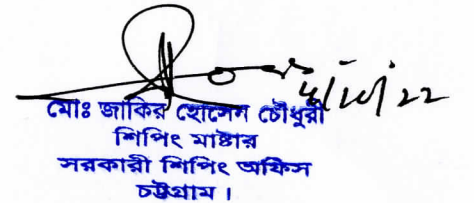 ৬/১০/২২
মোঃ জাকির হোসেন চৌধুরী
শিপিং মাষ্টার
সরকারী শিপিং অফিস
চট্টগ্রাম ।